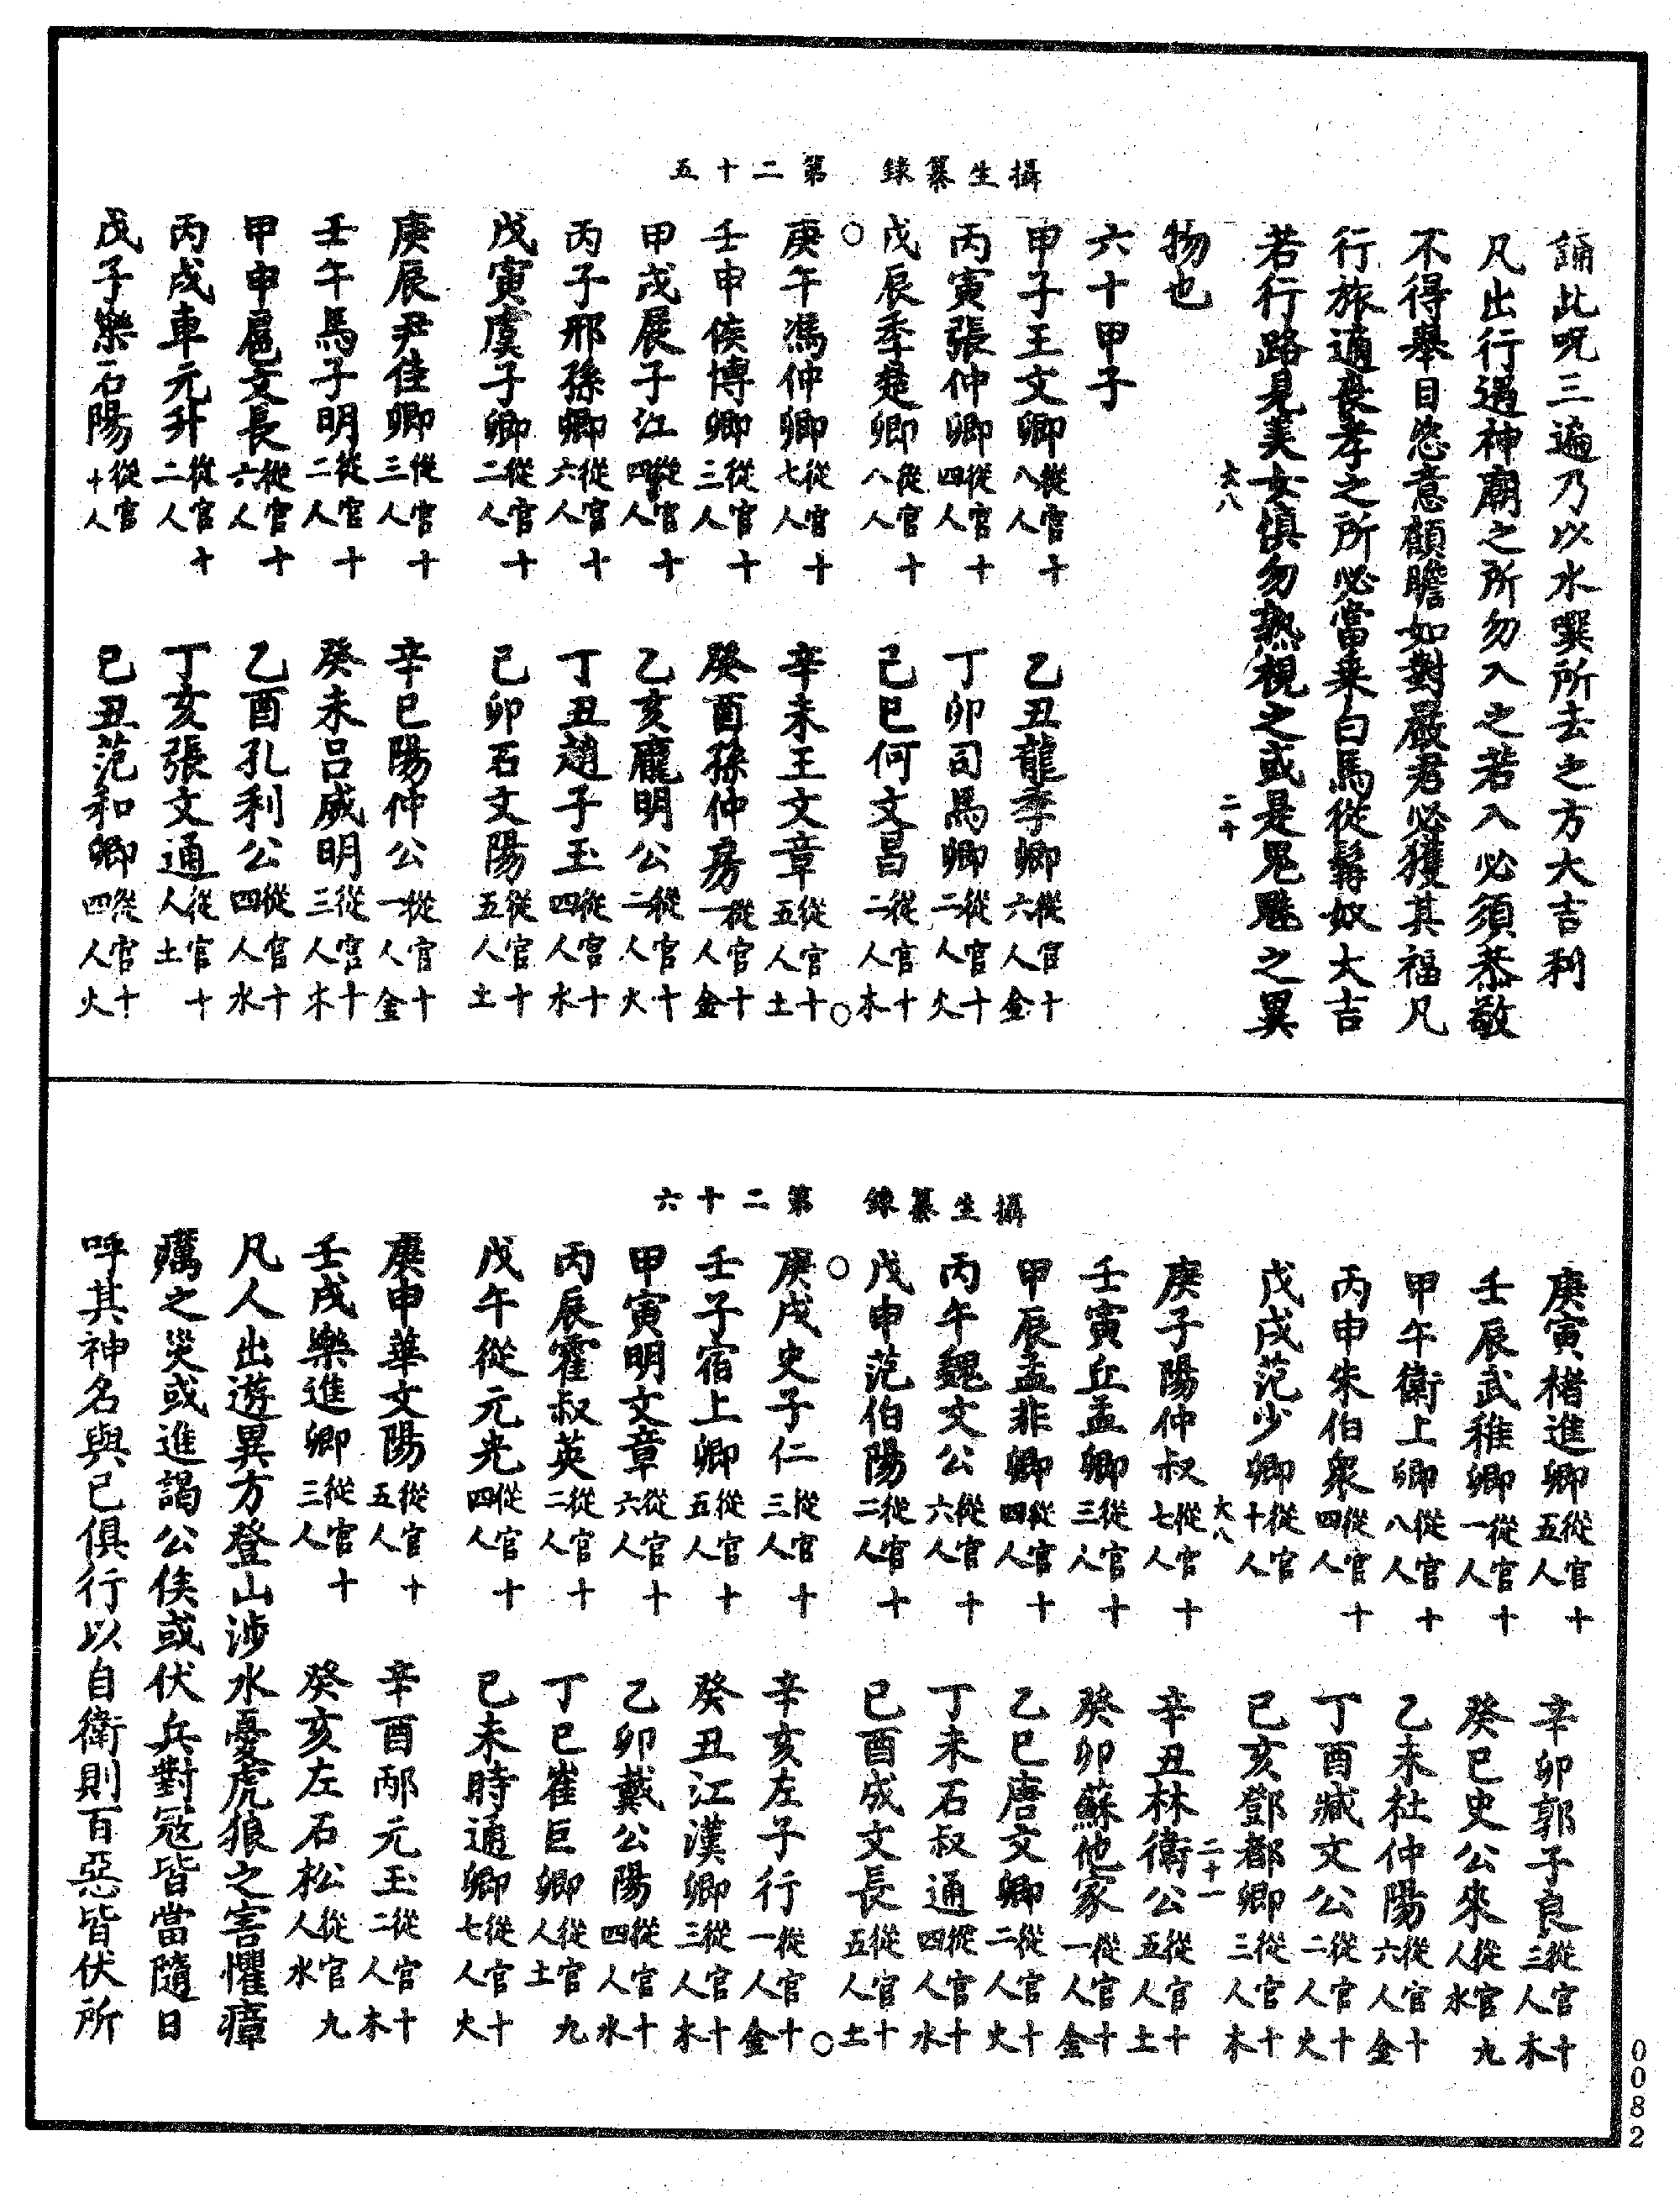 攝生纂錄　第二十五
誦此呪三遍乃以水噀所去之方大吉利
凡出行遇神廟之所勿入之若入必須恭敬
不得舉目恣意顧瞻如對嚴君必獲其福凡
行旅適喪孝之所必當乘白馬從髯奴大吉
若行路見美女慎勿熟視之或是鬼魅之異
夫八　二十
物也
六十甲子
甲子王文卿從官十八人　乙丑龍季卿從官十六人金
丙寅張仲卿從官十四人　丁卯司馬卿從官十二人火
戊辰季楚卿從官十八人　己巳何文昌從官十二人木
庚午馮仲卿從官十七人　辛未王文章從官十五人土
壬申侯博卿從官十三人　癸酉孫仲房從官十一人金
甲戌展子江從官十四人　乙亥龐明公從官十二人火
丙子邢孫卿從官十六人　丁丑趙子玉從官十四人水
戊寅虞子卿從官十二人　己卯石文陽從官十五人土
庚辰尹佳卿從官十三人　辛巳陽仲公從官十一人金
壬午馬子明從官十二人　癸未呂威明從官十三人木
甲申扈文長從官十六人　乙酉孔利公從官十四人水
丙戌車元升從官十二人　丁亥張文通從官十人土
戊子樂石陽從官十人　己丑范和卿從官十四人火
攝生纂錄　第二十六
庚寅楮進卿從官十五人　辛卯郭子良從官十三人木
壬辰武稚卿從官十一人　癸巳史公來從官九人水
甲午衛上卿從官十八人　乙未杜仲陽從官十六人金
丙申朱伯衆從官十四人　丁酉臧文公從官十二人火
戊戌范少卿從官十人　己亥鄧都卿從官十三人木
夫八　二十一
庚子陽仲叔從官十七人　辛丑林衛公從官十五人土
壬寅丘孟卿從官十三人　癸卯蘇他家從官十一人金
甲辰孟非卿從官十四人　乙巳唐文卿從官十二人火
丙午魏文公從官十六人　丁未石叔通從官十四人水
戊申范伯陽從官十二人　己酉成文長從官十五人土
庚戌史子仁從官十三人　辛亥左子行從官十一人金
壬子宿上卿從官十五人　癸丑江漢卿從官十三人木
甲寅明文章從官十六人　乙卯戴公陽從官十四人水
丙辰霍叔英從官十二人　丁巳崔巨卿從官九人土
戊午從元光從官十四人　己未時通卿從官十七人火
庚申華文陽從官十五人　辛酉邴元玉從官十二人木
壬戌樂進卿從官十三人　癸亥左石松從官九人水
凡人出遊異方登山涉水憂虎狼之害懼瘴
癘之災或進謁公侯或伏兵對冦皆當隨日
呼其神名與已俱行以自衛則百惡皆伏所
0082